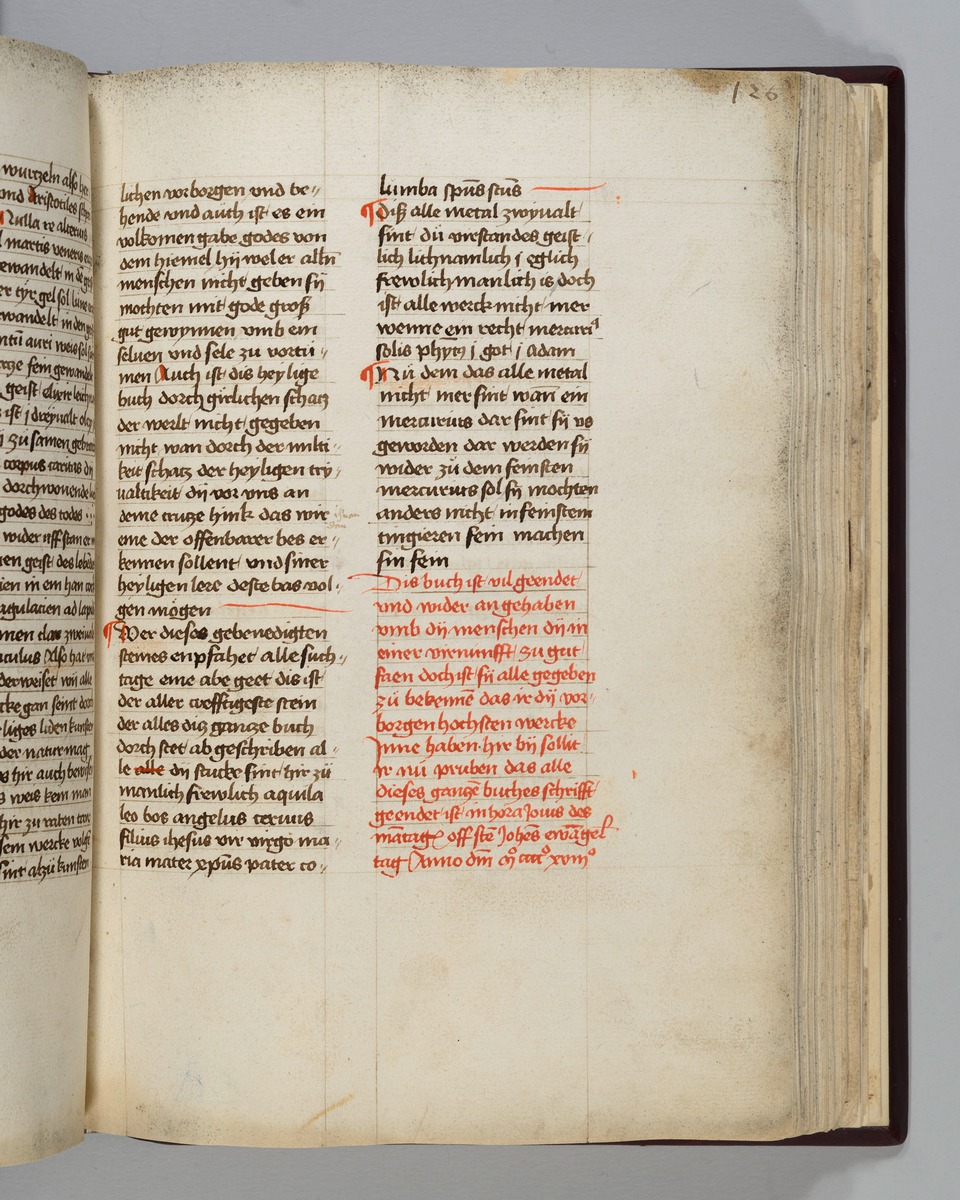 126
wurczeln also
vnd Aristotiles
Nulla re alterius
martis veneris
ewandelt in de
er tyr gel sol lune
wandelt in den
auri weis sol
fein gewande
geist elixir leich
ist j dreyualt
zu samen gebun
corpus caritas
dorchwonende
godes des todes
wider uff stan
en geist des lebens
ien in em han
agulacien ad lapi
men das zweiual
culus Also hat
derweiset wij alle
cke gan seint
liges liden
der natur mag
hir auch bewise
weis kem man
hir zu raten
sem wercke volg
sint alzu kunsten
lichen vorborgen vnd be〃
hende vnd auch ist es ein
volkomen gabe godes von
dem hiemel hij wel er alln̄
menschen nicht geben sij
mochten mit gode groß
gut gewynnen vmb ein
seluen vnd sele zu vortu〃
men Auch ist dis heylige
buch dorch girlichen schacz
der werlt nicht gegeben
nicht wan dorch der milti〃
keit schatz der heyligen try〃
ualtikeit dij vor vns an
deme crucze hink das wir
eme der offenbarer bes er〃
kennen sollent vnd siner
heyligen lere deste bas vol〃
gen mögen
¶ Wer dieses gebenedigten
steines enpfahet alle such〃
tage eme abe geet dis ist
der aller crefftigeste stein
der alles diz gancze buch
dorch stet ab geschriben al〃
le alle dij stucke sint hir zü
manlich frewlich aquila
leo bos angelus tercius
filius ihesus vir virgo ma〃
ria mater xp̄us pater co〃
lumba spūs scūs
¶ Diß alle metal zwyualt
sint dü vorstandes geist
lich lichnamlich j eglich
frewlich manlich is doch
ist alle werck nicht mer
wenne ein recht mercuri⁹
solis phyto j got j Adam
¶ Nü dem das alle metal
nicht mer sint wan̄ ein
mercurius dar sint sij vs
geworden dar werden sij
wider zü dem feinsten
mercurius sol sij mochten
anders nicht in feinstem
tingieren fein machen
sin fein
Dis buch ist vil geendet
vnd wider an gehaben
vmb dij menschen dij in
einer virnunfft zu gut
faen doch ist sij alle gegeben
zü bekennē das ir dij vor〃
borgen hochsten wercke
Jnne haben hir bij sollit
ir nu pruben das alle
dieses ganczē buches schrifft
geendet ist in hora Jouis des
mātag off stē Johēs ewāgel
tag Anno dm̄ mº ccccº xviiiº